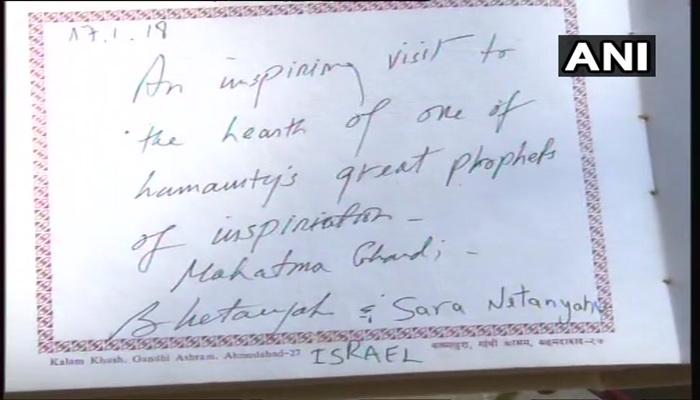 17.1.18
ANI
An inspiring visit to
the hearth of one of
humanity's great prophets
of inspiriation -
Mahatma Ghandi -
B Netanyah & Sara Netanyahu
Kalam Khush, Gandhi Ashram, Ahmedabad-27
ISRAEL
कलमखुश, गांधी आश्रम, अहमदाबाद-२७